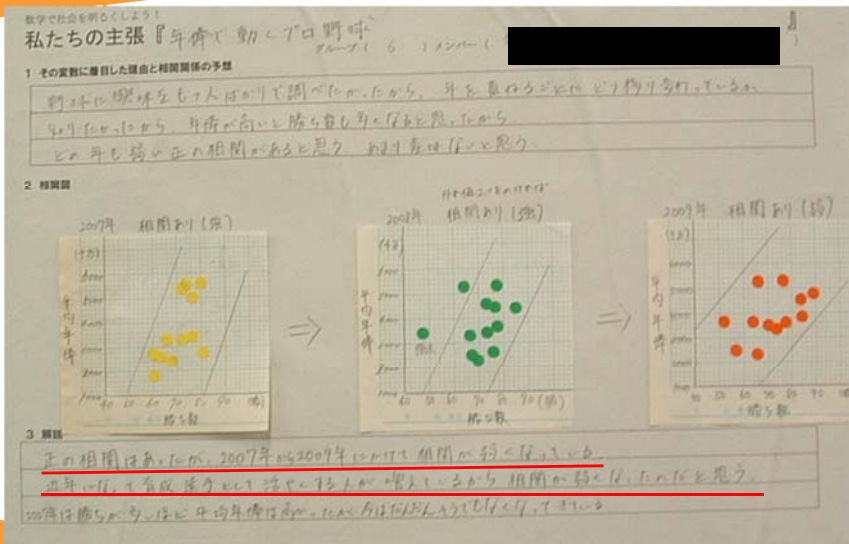 数学で社会を明るくしよう！
私たちの主張『年俸で動くプロ野球』
グループ( 6 )メンバー( )
1 その変数に着目した理由と相関関係の予想
野球に興味をもつ人ばかりで調べたかったから、年を重ねるごとにどう移り変わっているか
知りたかったから、年俸が高いと勝ち数も多くなると思ったから
どの年も強い正の相関があると思う。あまり差はないと思う。
2 相関図
2007年 相関あり(強)
(千万)
平均年俸
勝ち数
⇒
外れ値2つをのければ
2008年 相関あり(強)
平均年俸
横浜
勝ち数
⇒
2009年 相関あり(弱)
平均年俸
勝ち数
3 解説
正の相関はあったが、2007年から2009年にかけて相関が弱くなっている。
近年になって育成選手として活やくする人が増えているから相関が弱くなったのだと思う。
2007年は勝ちが多いほど平均年俸は高かったが今はだんだんそうでもなくなってきている